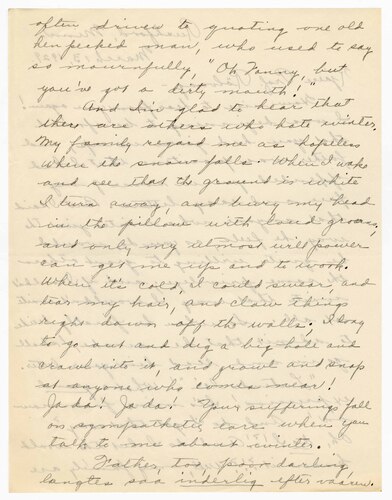 often driven to quoting one old
hen pecked man, who used to say
so mournfully, "Oh Fanny, but
you've got a dirty mouth!"
And I'm glad to hear that
there are others who hate winter.
My family regard me as hopeless
when the snow falls. When I wake
and see that the ground is white
I turn away, and bury my head
in the pillow with loud groans,
and only my utmost will power
can get me up and to work.
When it's cold, I could swear, and
tear my hair, and claw things
right down off the walls. I long
to go out and dig a big hole and
crawl into it and growl and snap
at anyone who comes near!
Ja da! Ja da! Your sufferings fall
on sympathetic ears when you
talk to me about winter.
Father, too, poor darling,
længtes saa inderlig efter vaaren.